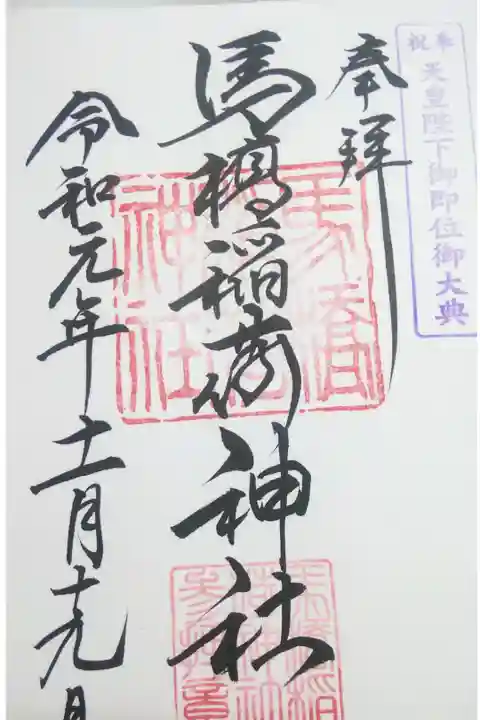 奉祝
天皇陛下御即位御大典
奉拝
馬橋稲荷神社
令和元年十一月十九日
馬橋
神社